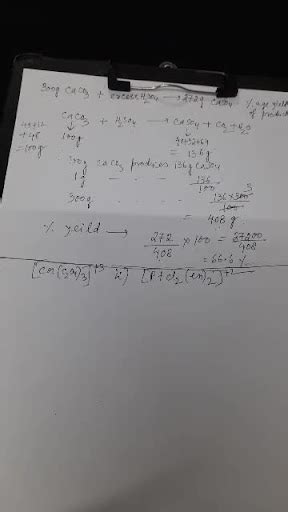 300g CaCO3 + excess H2SO4 → 272g CaSO4 . % age yield
of product
CaCO3 + H2SO4 → CaSO4 + CO2 + H2O
100g
+48
=100g
= 136g
100g CaCO3 produces 136g CaSO4
1g - - - 136/100
300g - - - 136×300/100 3
= 408 g
% yeild → 272/408 × 100 = 27200/408
= 66.6 %